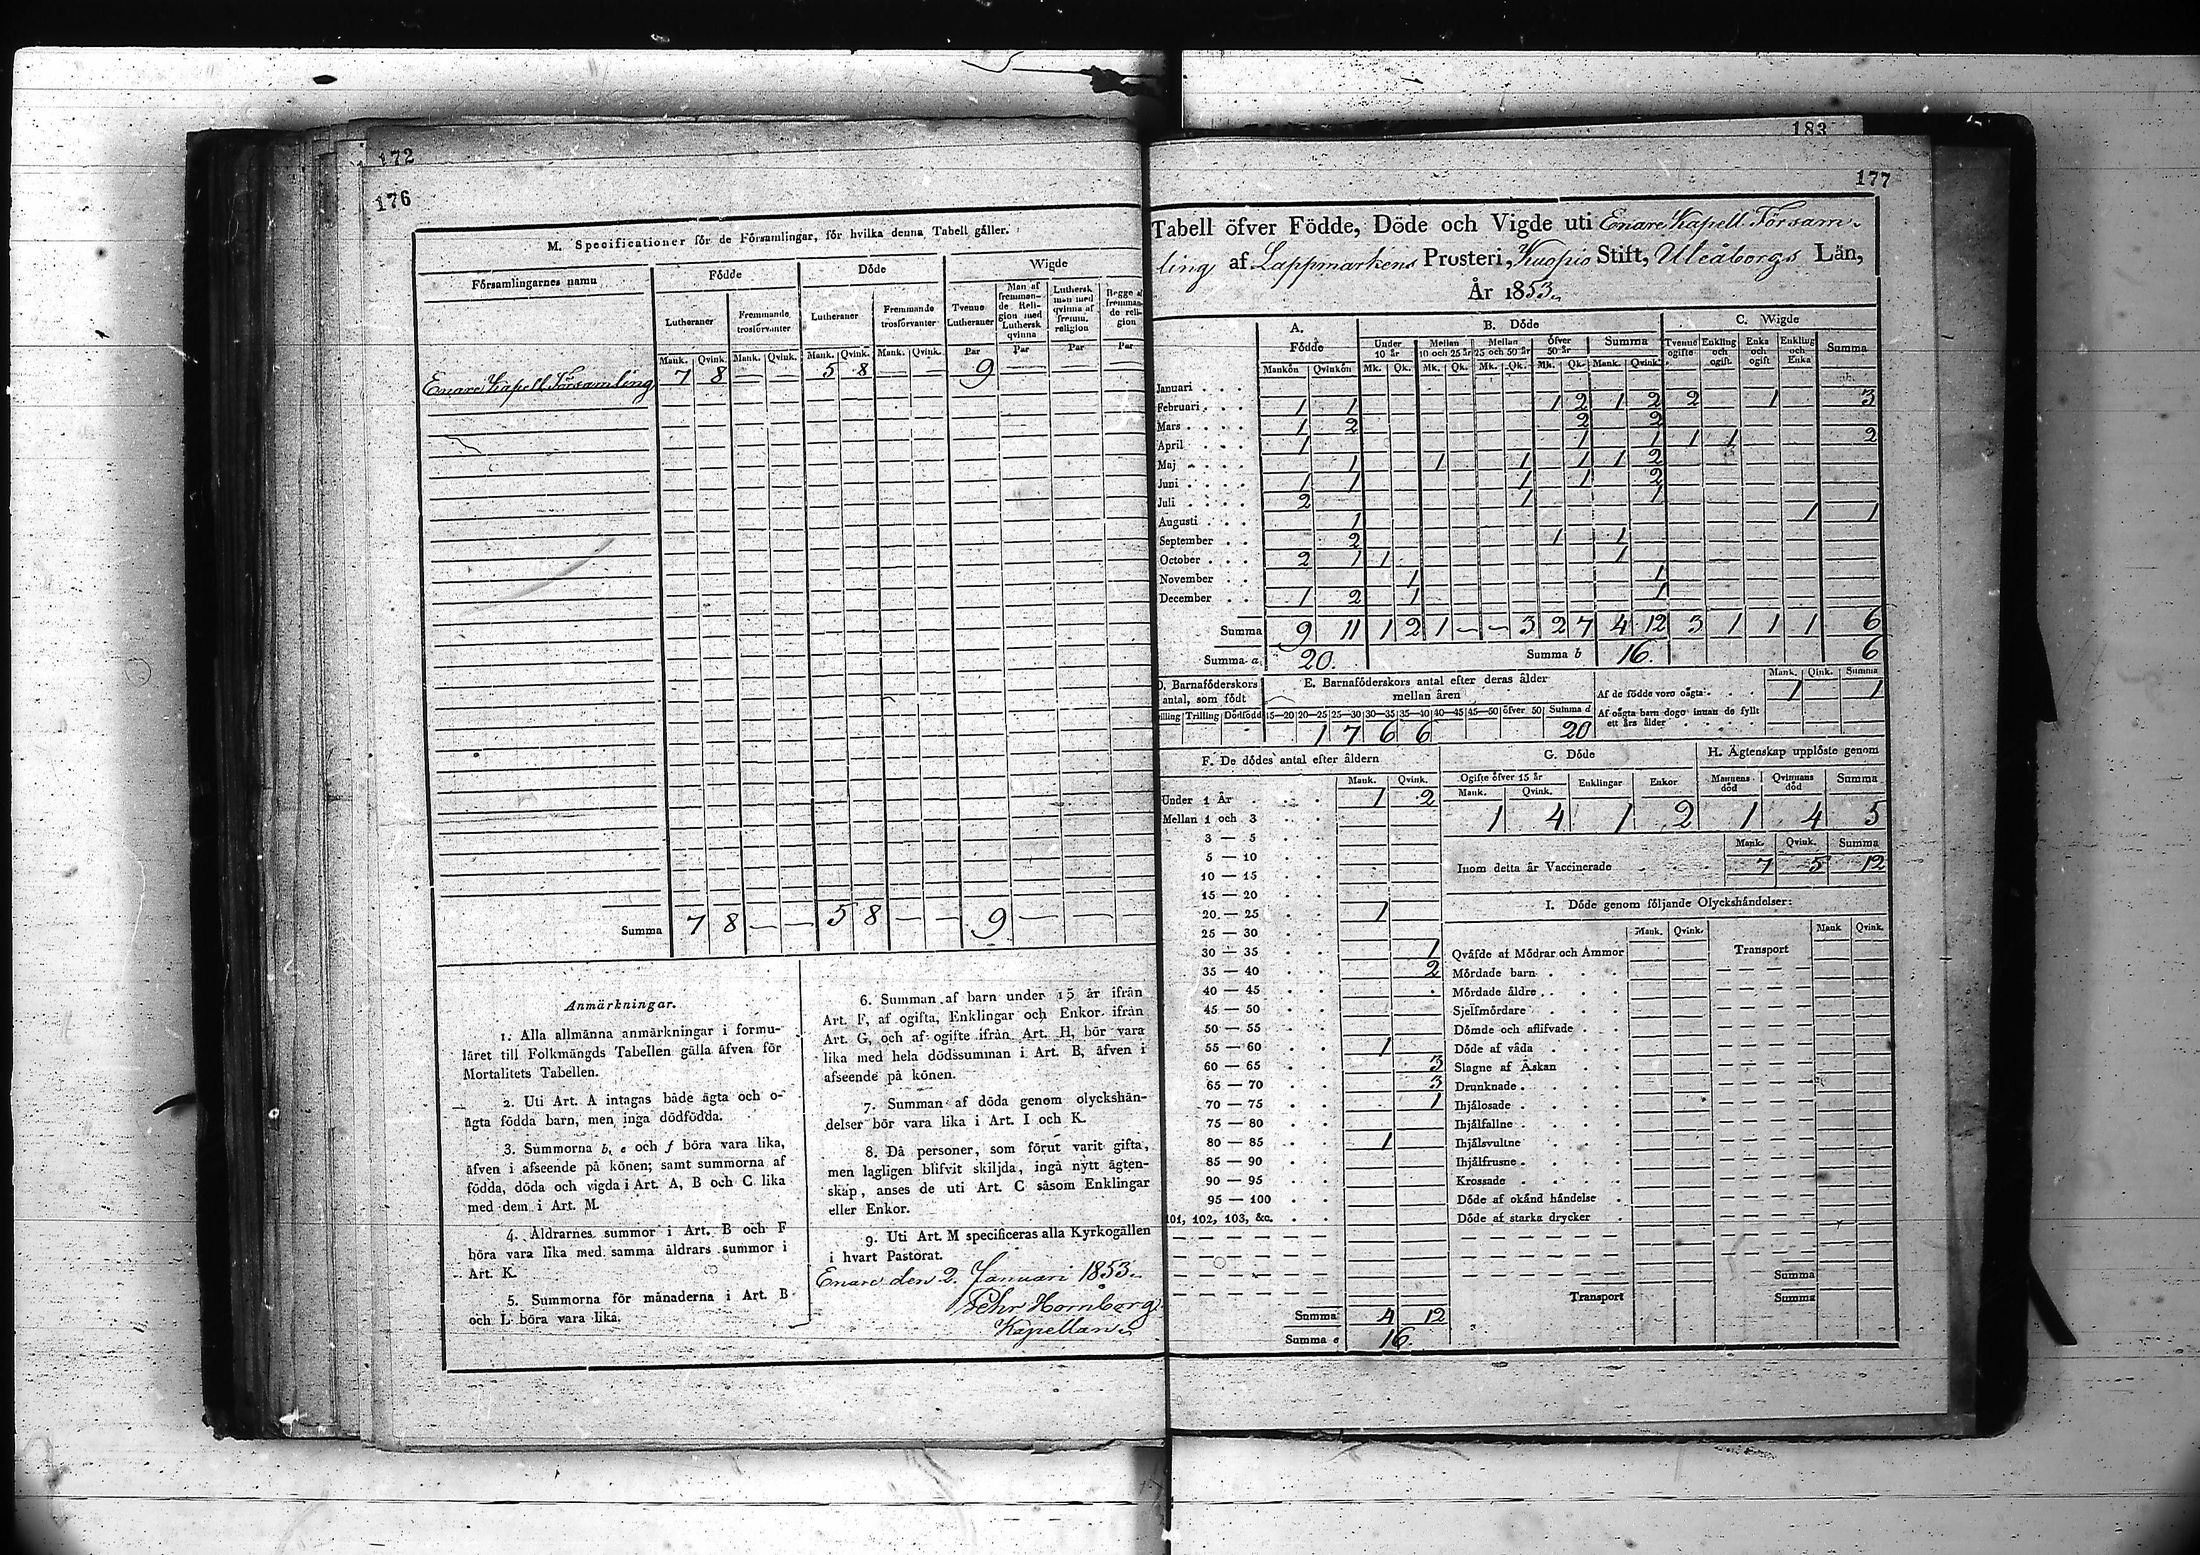 172
176
M. Specificationer för de Församlingar, för hvilka denna Tabell gäller.
Församlingarnes namn
Födde
Döde
Wigde
Lutheraner
Fremmande trosförvanter
Lutheraner
Fremmande trosförvanter
Tvenne Lutheraner
Man af fremmande Religion med Luthersk qvinna
Luthersk man med qvinna af fremm. religion
Begge af fremmande religion
Mank. Qvink. Mank. Qvink. Mank. Qvink. Mank. Qvink. Par Par Par Par
Enare Kapell Församling 7 8 — — 5 8 — — 9 — — —
Summa 7 8 — — 5 8 — — 9 — — —
Anmärkningar.
1. Alla allmänna anmärkningar i formu-
läret till Folkmängds Tabellen gälla äfven för
Mortalitets Tabellen.
2. Uti Art. A intagas både ägta och o-
ägta födda barn, men inga dödfödda.
3. Summorna b, e och f böra vara lika,
äfven i afseende på könen; samt summorna af
födda, döda och vigda i Art. A, B och C lika
med dem i Art. M.
4. Åldrarnes summor i Art. B och F
böra vara lika med samma åldrars summor i
Art. K.
5. Summorna för månaderna i Art. B
och L böra vara lika.
6. Summan af barn under 15 år ifrån
Art. F, af ogifta, Enklingar och Enkor ifrån
Art. G, och af ogifte ifrån Art. H, bör vara
lika med hela dödssumman i Art. B, äfven i
afseende på könen.
7. Summan af döda genom olyckshän-
delser bör vara lika i Art. I och K.
8. Då personer, som förut varit gifta,
men lagligen blifvit skiljda, ingå nytt ägten-
skap, anses de uti Art. C såsom Enklingar
eller Enkor.
9. Uti Art. M specificeras alla Kyrkogällen
i hvart Pastorat.
Enare den 2. Januari 1853.
Pehr Hornborg
Kapellan.
183
177
Tabell öfver Födde, Döde och Vigde uti Enare Kapell Försam-
ling af Lappmarkens Prosteri, Kuopio Stift, Uleåborgs Län,
År 1853.
A. Födde
B. Döde
C. Wigde
Under 10 år
Mellan 10 och 25 år
Mellan 25 och 50 år
Öfver 50 år
Summa
Tvenne ogifte
Enkling och ogift.
Enka och ogift
Enkling och Enka
Summa
Mankön Qvinkön Mk. Qk. Mk. Qk. Mk. Qk. Mk. Qk. Mank. Qvink.
Januari
Februari 1 1 1 2 1 2 2 1 3
Mars 1 2 2 2
April 1 1 1 1 1 2
Maj 1 1 1 1 1 2
Juni 1 1 1 1 2
Juli 2 1 1
Augusti 1 1 1
September 2 1 1
October 2 1 1 1
November 1 1
December 1 2 1 1
Summa 9 11 1 2 1 — — 3 2 7 4 12 3 1 1 1 6
Summa a 20. Summa b 16. 6
D. Barnaföderskors antal, som födt
E. Barnaföderskors antal efter deras ålder mellan åren
Mank. Qink. Summa
Af de födde voro oägta 1 1
Af oägta barn dogo innan de fyllt
ett års ålder
Trilling Dödfödd 15—20 20—25 25—30 30—35 35—40 40—45 45—50 öfver 50 Summa d
1 7 6 6 20
F. De dödes antal efter åldern
Mank. Qvink.
Under 1 År 1 2
Mellan 1 och 3
3 — 5
5 — 10
10 — 15
15 — 20
20 — 25 1
25 — 30
30 — 35 1
35 — 40 2
40 — 45
45 — 50
50 — 55
55 — 60 1
60 — 65 3
65 — 70 3
70 — 75 1
75 — 80
80 — 85 1
85 — 90
90 — 95
95 — 100
101, 102, 103, &c.
Summa 4 12
Summa e 16.
G. Döde
Ogifte öfver 15 år
Mank. Qvink.
Enklingar
Enkor
1 4 1 2
H. Ägtenskap upplöste genom
Mannens död
Qvinnans död
Summa
1 4 5
Mank. Qvink. Summa
Inom detta år Vaccinerade 7 5 12
I. Döde genom följande Olyckshändelser:
Mank. Qvink.
Mank Qvink.
Qväfde af Mödrar och Ammor
Mördade barn
Mördade äldre
Sjelfmördare
Dömde och aflifvade
Döde af våda
Slagne af Åskan
Drunknade
Ihjälosade
Ihjälfallne
Ihjälsvultne
Ihjälfrusne
Krossade
Döde af okänd händelse
Döde af starka drycker
Transport
Transport
Summa
Summa